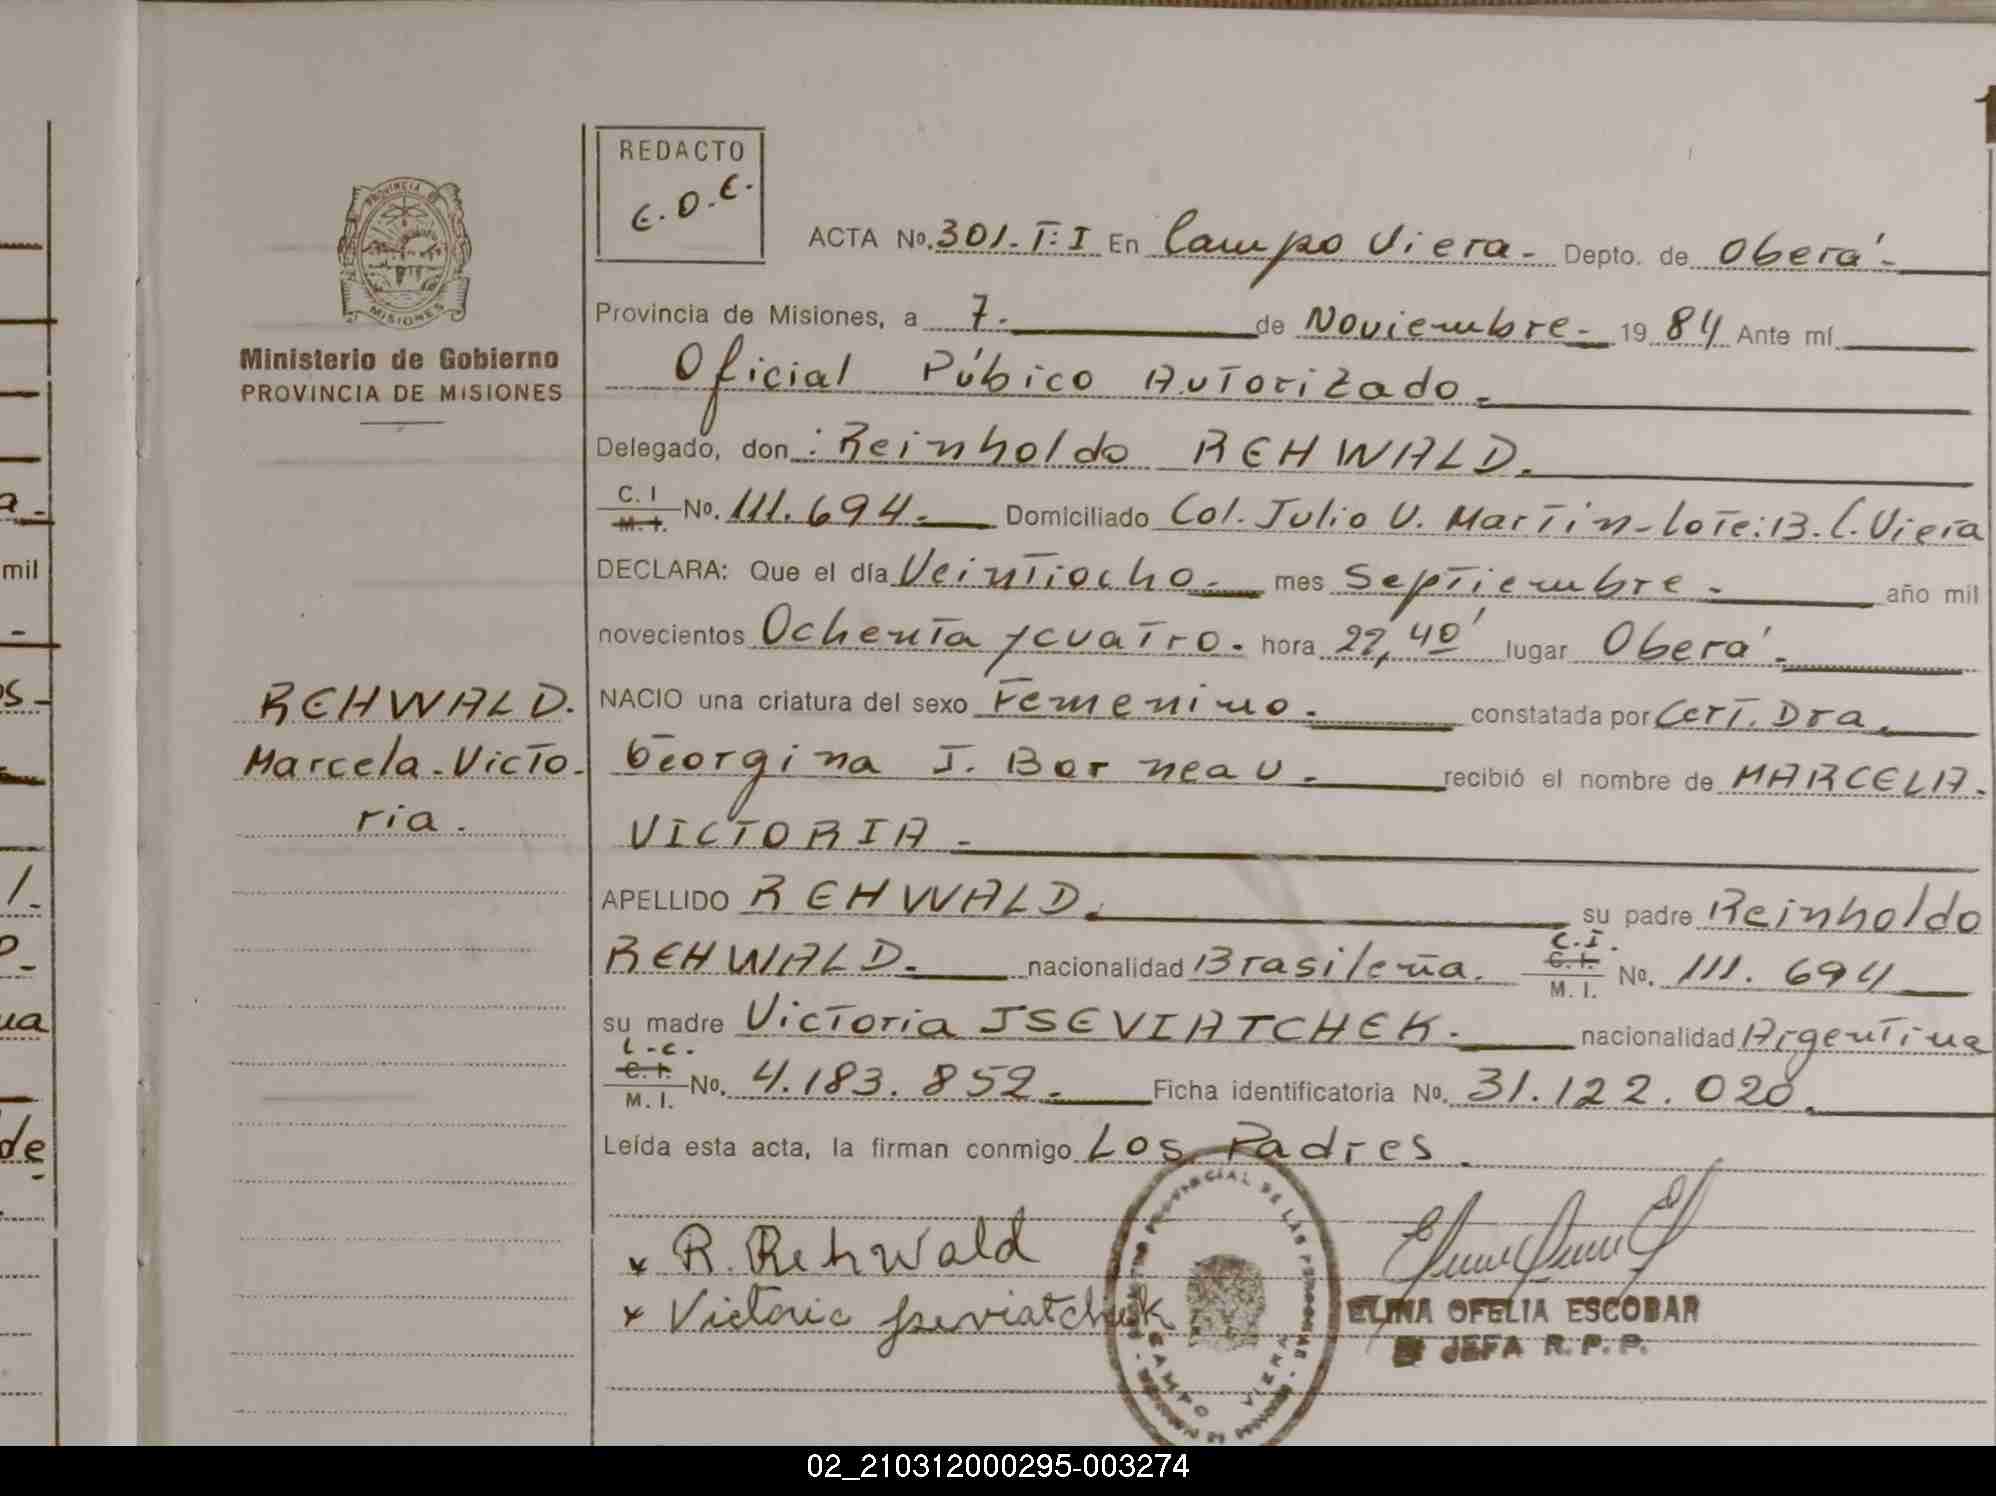 REDACTO
E.O.E.
ACTA No. 301. T: I En Campo Viera - Depto. de Oberá -
PROVINCIA DE
MISIONES
Provincia de Misiones, a 7. de Noviembre - 19 84 Ante mí
Ministerio de Gobierno
PROVINCIA DE MISIONES
Oficial Púbico Autorizado -
Delegado, don : Reinholdo REHWALD.
C. I
M. I. No. 111.694. Domiciliado Col. Julio U. Martin - lote: 13. C. Viera
mil
DECLARA: Que el día Veintiocho. mes Septiembre - año mil
novecientos Ochenta y cuatro. hora 22,40' lugar Oberá -
REHWALD.
Marcela - Victo-
ria.
NACIO una criatura del sexo Femenino. constatada por Cert. Dra.
Georgina J. Borneau. recibió el nombre de MARCELA -
VICTORIA -
APELLIDO REHWALD. su padre Reinholdo
REHWALD. nacionalidad Brasileña. C.I. C.I. M. I. No. 111.694
su madre Victoria JSEVIATCHEK. nacionalidad Argentina
L.C.
C.I.
M. I. No. 4.183.852. Ficha identificatoria No. 31.122.020.
de
Leída esta acta, la firman conmigo Los Padres.
x R. Rehwald
x Victoria Jseviatchek
PROVINCIAL DE LAS PERSONAS
CAMPO VIERA
ELINA OFELIA ESCOBAR
JEFA R. P. P.
02_210312000295-003274